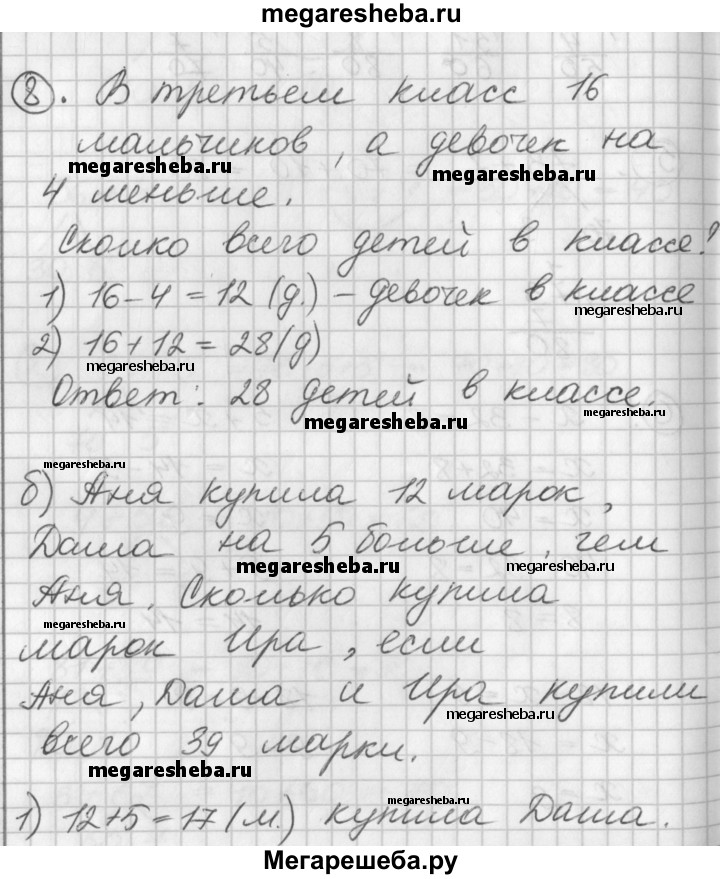 megaresheba.ru
8. В третьем класс 16
мальчиков, а девочек на
megaresheba.ru megaresheba.ru
4 меньше.
Сколко всего детей в классе?
1) 16-4=12 (д.) - девочек в классе
megaresheba.ru
2) 16+12=28(д)
megaresheba.ru
Ответ: 28 детей в классе.
megaresheba.ru megaresheba.ru
megaresheba.ru
б) Аня купила 12 марок,
Даша на 5 больше, чем
megaresheba.ru megaresheba.ru
Аня. Сколько купила
megaresheba.ru
марок Ира, если
Аня, Даша и Ира купили
megaresheba.ru
всего 39 марки.
megaresheba.ru
megaresheba.ru
1) 12+5=17(м.) купила Даша.
Мегарешеба.ру